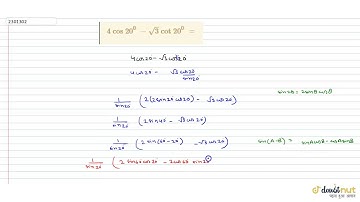 2301302
4 cos 20⁰ − √3 cot 20⁰ =
4cos20 − √3 cot20
4cos20 − √3 cos20/sin20
1/sin20 (2(2sin20 cos20) − √3 cos20)
sin2θ = 2sinθ cosθ
1/sin20 (2sin40 − √3 cos20)
1/sin20 (2 sin(60−20) − √3 cos20)
sin(A−B) = sinAcosB − cosAsinB
1/sin20 (2 sin60 cos20 − 2cos60 sin20
doubtnut